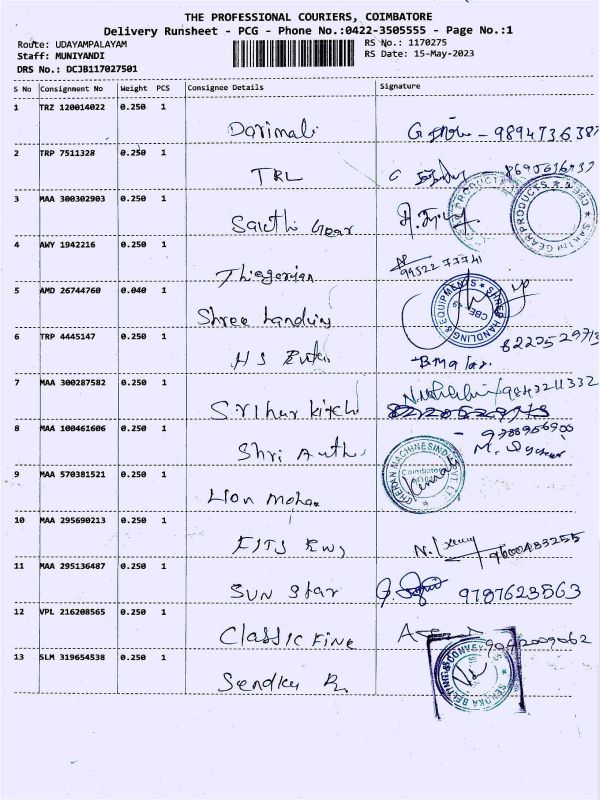 THE PROFESSIONAL COURIERS, COIMBATORE
Delivery Runsheet - PCG - Phone No.:0422-3505555 - Page No.:1
Route: UDAYAMPALAYAM
Staff: MUNIYANDI
DRS No.: DCJB117027501
RS No.: 1170275
RS Date: 15-May-2023
S No Consignment No Weight PCS Consignee Details Signature
1 TRZ 120014022 0.250 1
Dorimali
2 TRP 7511328 0.250 1
TRL
3 MAA 300302903 0.250 1
Sakthi Gear
SAKTHI GEAR PRODUCTS
4 AWY 1942216 0.250 1
Thiagarajan 99522 77741
5 AMD 26744760 0.040 1
Shree handling
SHREE HANDLING & EQUIPMENTS
CBE-49
6 TRP 4445147 0.250 1
HS
7 MAA 300287582 0.250 1
9843211332
8 MAA 100461606 0.250 1
Shri 9788956900
9 MAA 570381521 0.250 1
Lion Mohan
Coimbatore
10 MAA 295690213 0.250 1
9600483255
11 MAA 295136487 0.250 1
SUN Star 9787623563
12 VPL 216208565 0.250 1
Classic Fine 9042009062
13 SLM 319654538 0.250 1